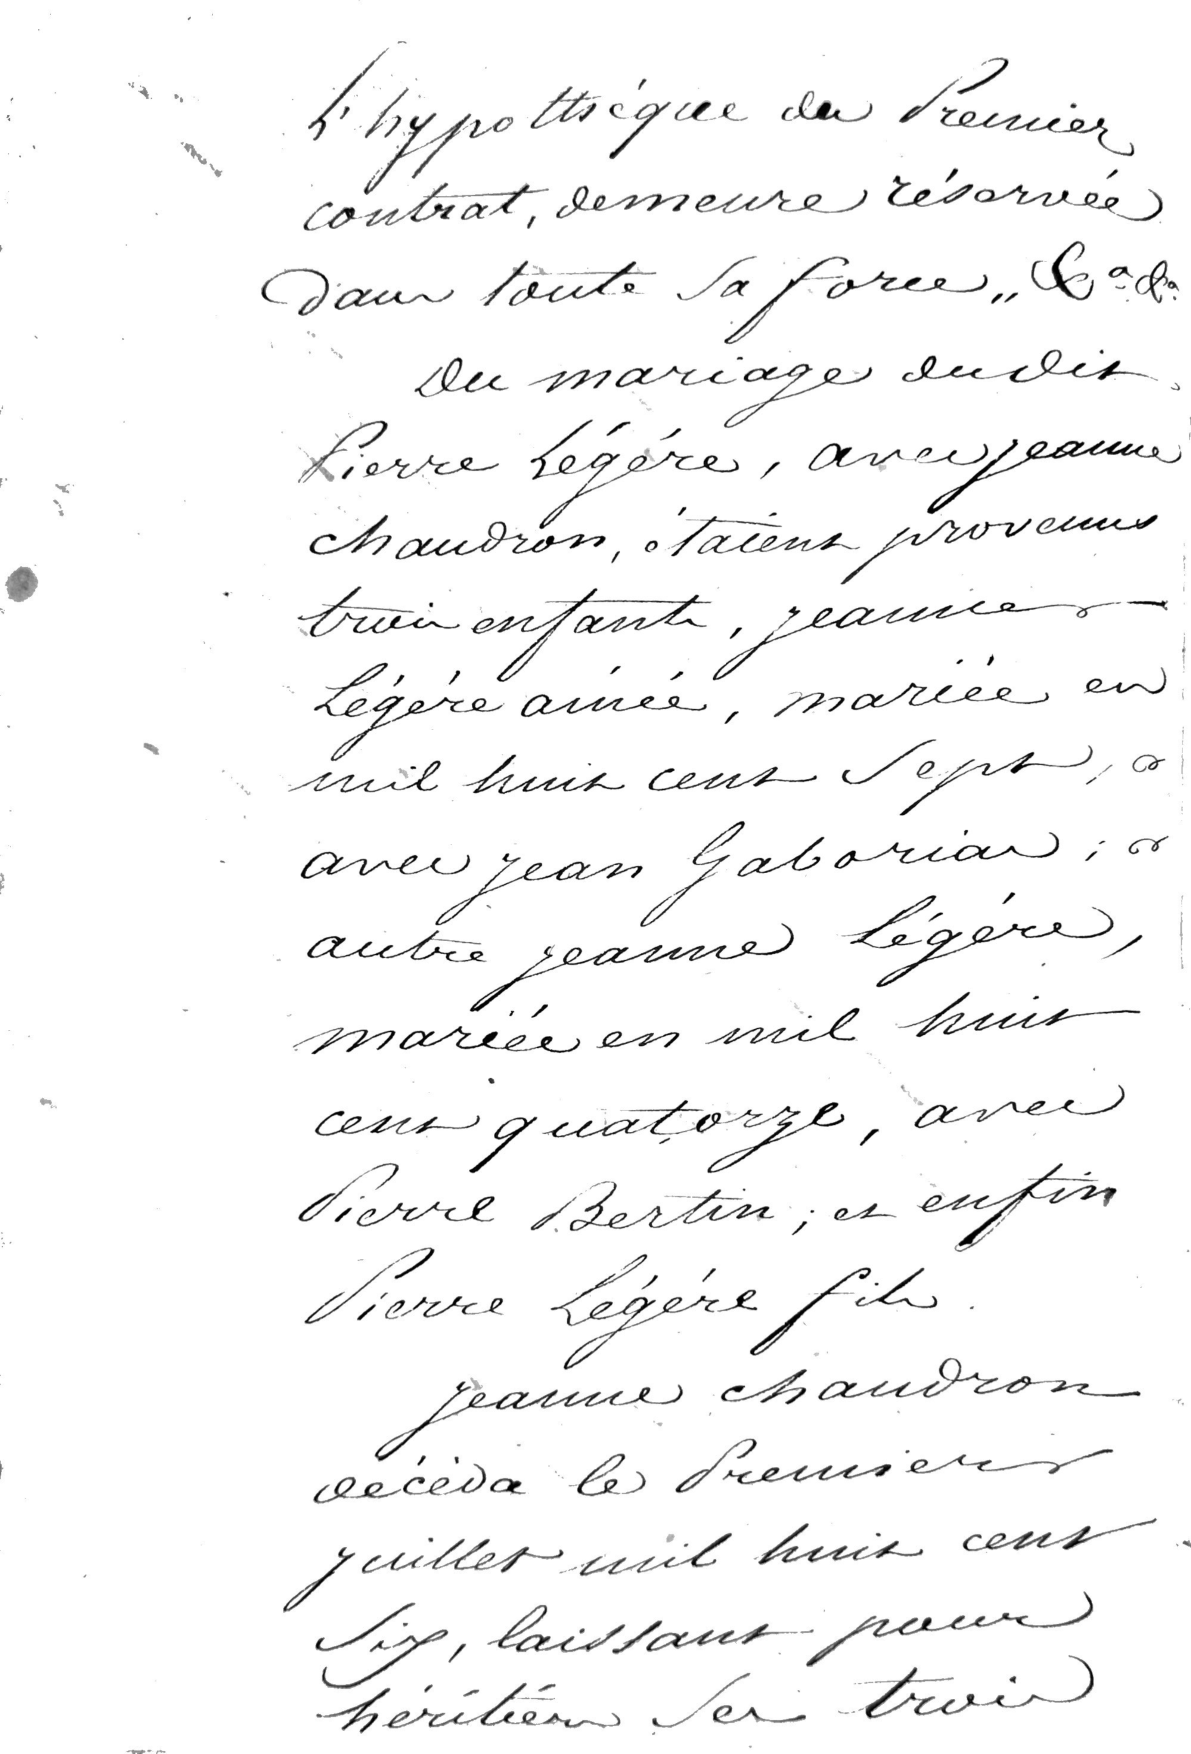 L'hypothèque du Premier
contrat, demeure réservée
dans toute sa force,, &a &a
Du mariage dudit
Pierre Légére, avec jeanne
chaudron, étaient provenus
trois enfants, jeanne
Légére ainée, mariée en
mil huit cent sept,
avec jean Gaboriau ;
autre jeanne Légére,
mariée en mil huit
cent quatorze, avec
Pierre Bertin ; et enfin
Pierre Légére fils.
jeanne chaudron
décéda le Premier
juillet mil huit cent
six, laissant pour
héritiers ses trois